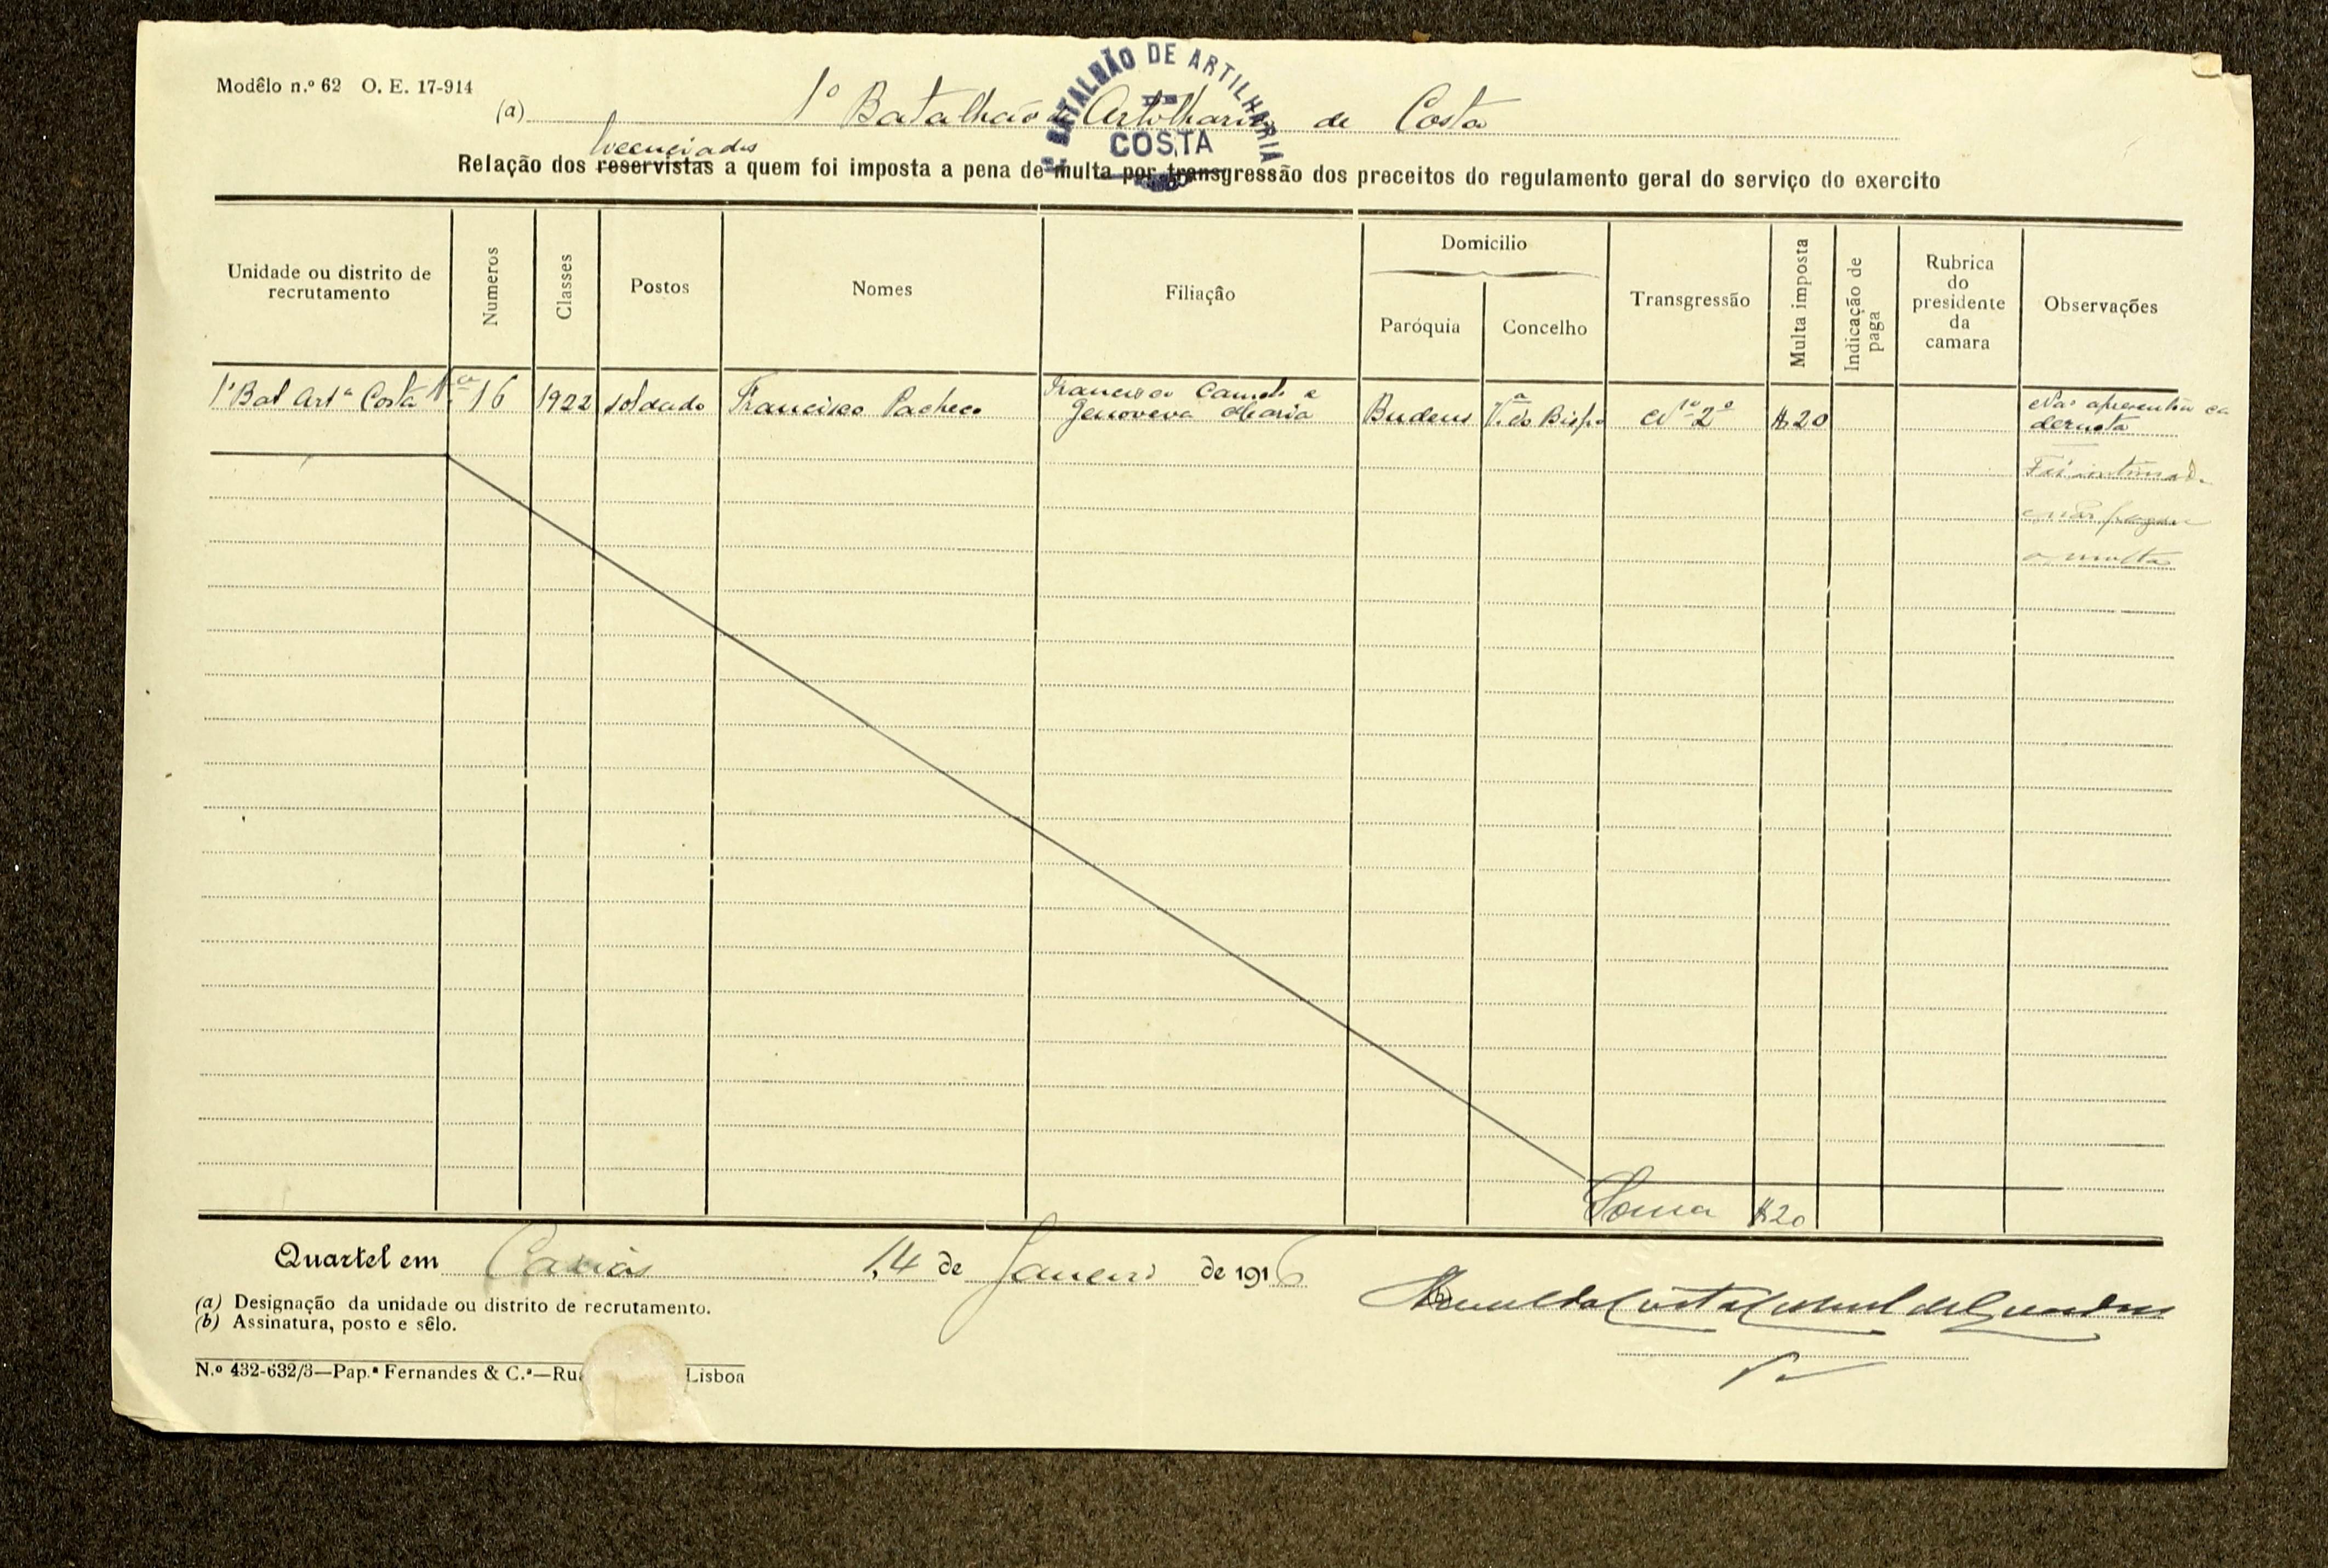 Modêlo n.º 62 O. E. 17-914
BATALHÃO DE ARTILHARIA
COSTA
(a) 1º Batalhão Artilharia de Costa
licenciados
Relação dos reservistas a quem foi imposta a pena de multa por transgressão dos preceitos do regulamento geral do serviço do exercito
Unidade ou distrito de recrutamento
Numeros
Classes
Postos
Nomes
Filiação
Domicilio
Paróquia
Concelho
Transgressão
Multa imposta
Indicação de paga
Rubrica do presidente da camara
Observações
1º Bat Artª Costa 16 1922 soldado Francisco Pacheco
Francisco e
Genoveva Maria
Budens Vª do Bispo 2º $20
Não apresentou ca
derneta
Foi intimado
e não pagou
a multa
Soma $20
Quartel em Caxias 14 de Janeiro de 1916
(a) Designação da unidade ou distrito de recrutamento.
(b) Assinatura, posto e sêlo.
N.º 432-632/3—Pap.ª Fernandes & C.ª—Rua Lisboa